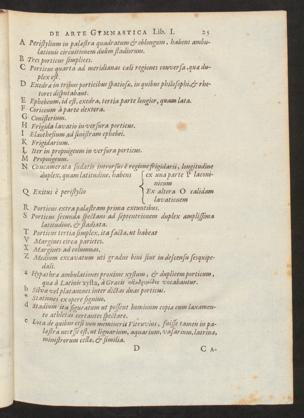 DE ARTE GYMNASTICA Lib. I. 25
A Peristylium in palæstra quadratum & oblongum, habens ambu-
lationis circuitionem duûm stadiorum.
B Tres porticus simplices.
C Porticus quarta ad meridianas cæli regiones conversa, quæ du-
plex est.
D Exedra in tribus porticibus spatiosa, in quibus philosophi, & rhe-
tores disputabant.
E Ephebeum, id est, exedra, tertia parte longior, quam lata.
F Coriceum à parte dextera.
G Conisterium.
H Frigida lavatio in versura porticus.
I Elæothesium ad sinistram ephebei.
K Frigidarium.
L Iter in propnigeum in versura porticus.
M Propnigeum.
N Concamerata sudatio introrsus è regione frigidarii, longitudine
duplex, quam latitudine, habens
ex una parte P laconi-
cum
Ex altera O calidam
lavationem
Q Exitus è peristylio
R Porticus extra palæstram prima exeuntibus.
S Porticus secunda spectans ad septentrionem duplex amplissima
latitudine, & stadiata.
T Porticus tertia simplex, ita facta, ut habeat
Margines circa parietes.
X Margines ad columnas.
Z Medium excavatum uti gradus bini sint in descensu sesquipe-
dali.
a Hypæthræ ambulationes proxime xystum, & duplicem porticum,
quæ à Latinis xysta, à Græcis vocabantur.
b Silvæ vel platanones inter duas porticus.
Stationes ex opere signino.
Stadium ita figuratum ut possent hominum copiæ cum laxamen-
to athletas certantes spectare.
e Loca de quibus etsi non meminerit Vitruvius, fuisse tamen in pa-
læstra necesse est, ut lignarium, aquarium, vasarium, latrina,
ministrorum cella, & similia.
D CA-